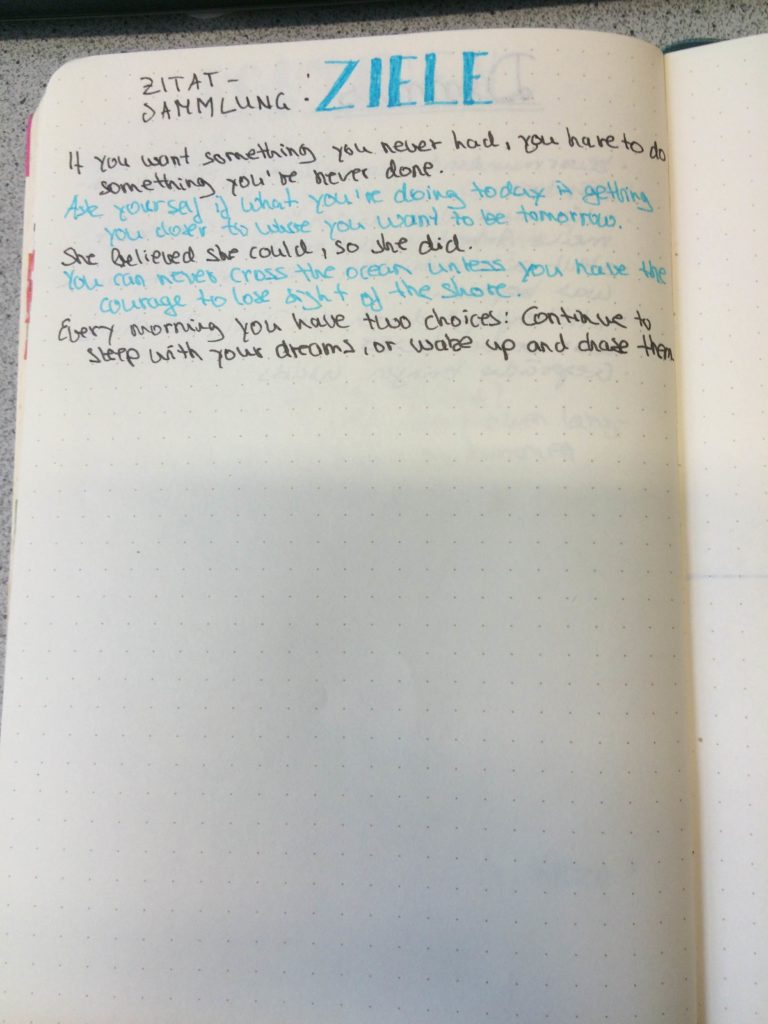 ZITAT-
SAMMLUNG: ZIELE
If you want something you never had, you have to do
something you're never done.
Ask yourself if what you're doing today is getting
you closer to where you want to be tomorrow.
She believed she could, so she did.
You can never cross the ocean unless you have the
courage to lose sight of the shore.
Every morning you have two choices: Continue to
sleep with your dreams, or wake up and chase them